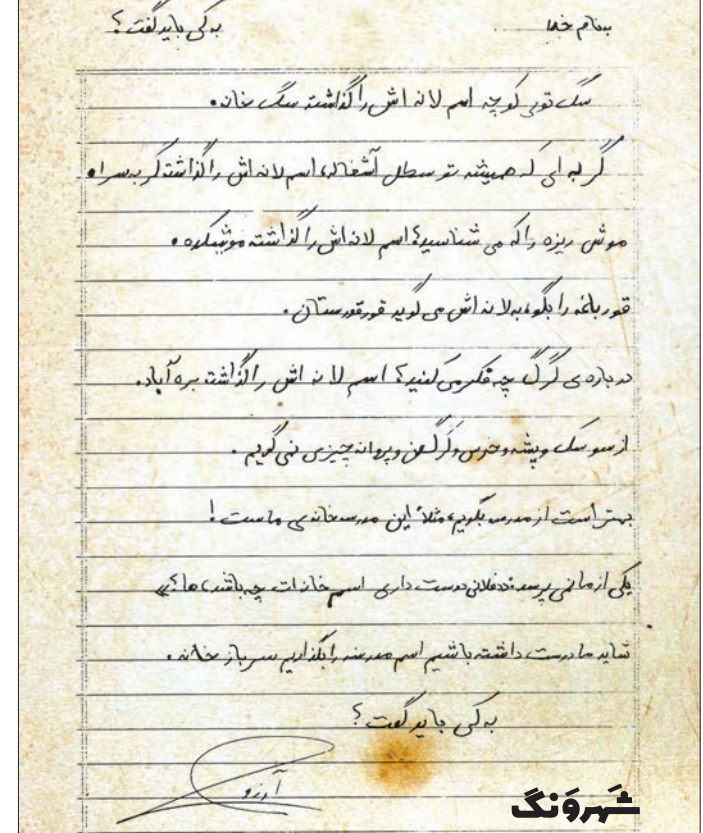 بنام خدا .......... به کی باید گفت؟
سگ توی کوچه اسم لانه اش را گذاشته سگ خانه.
گربه ای که همیشه تو سطل آشغاله، اسم لانه اش را گذاشته گربه سرا.
موش ریزه را که می شناسید؟ اسم لانه اش را گذاشته موشکده.
قورباغه را بگو، به لانه اش می گوید قورقورستان.
درباره ی گرگ چه فکر می کنید؟ اسم لانه اش را گذاشته بره آباد.
از سوسک و پشه و خرس و کرگدن و پروانه چیزی نمی گویم.
بهتر است از مدرسه بگویم، مثلاً این مدرسه خانه ی ماست!
یکی از ما نمی پرسد: «فلانی دوست داری اسم خانه ات چه باشد، ها؟»
شاید ما دوست داشته باشیم اسم مدرسه را بگذاریم سرباز خانه.
به کی باید گفت؟
آرزو
شهرونگ